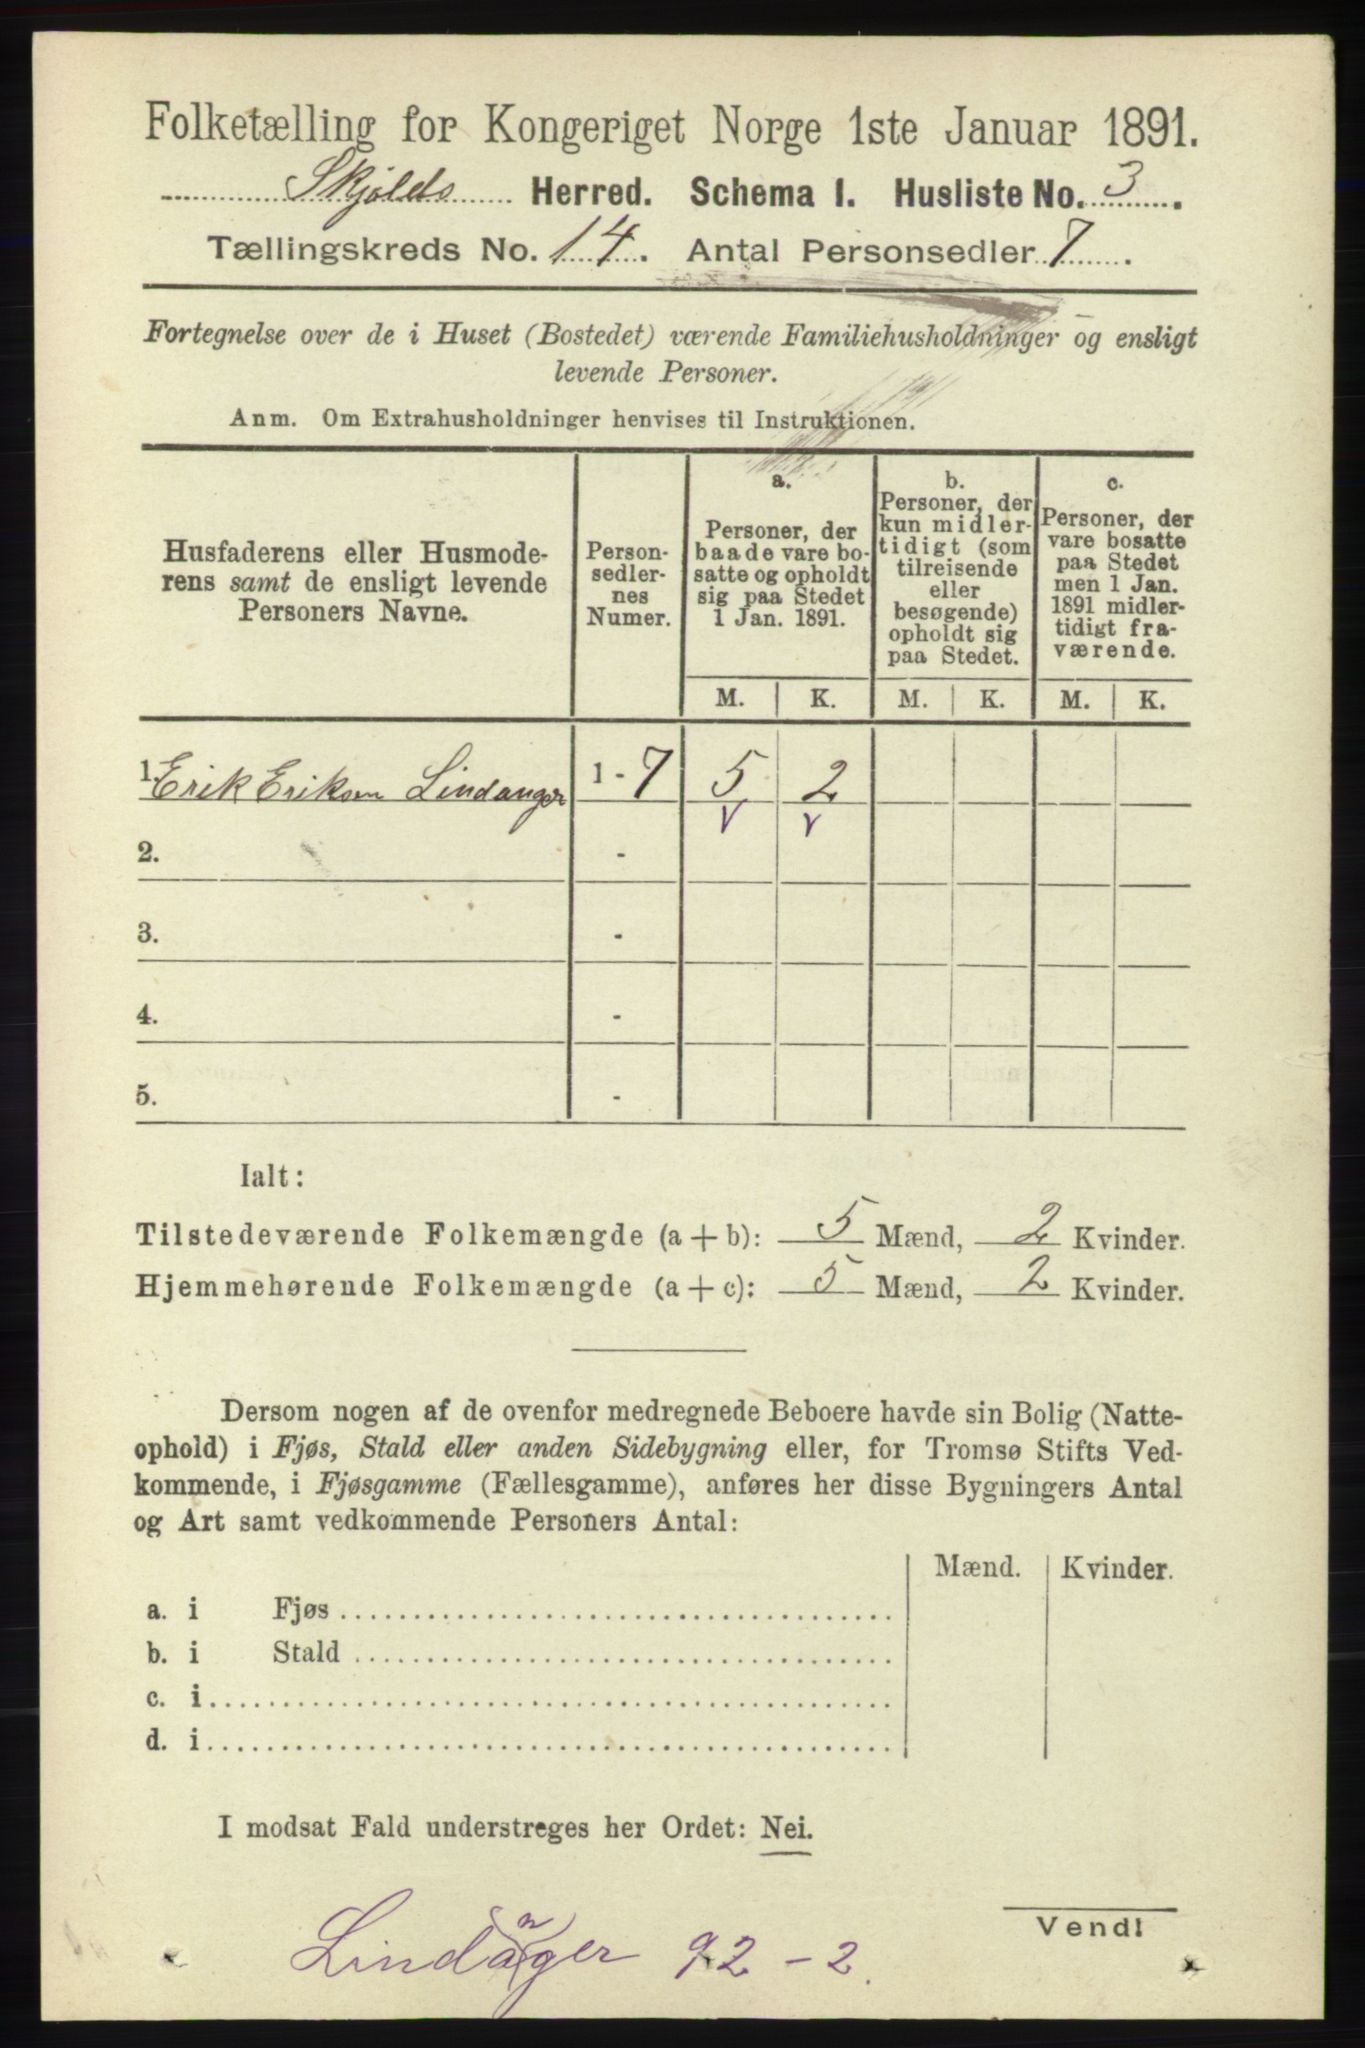 Folketælling for Kongeriget Norge 1ste Januar 1891.
Skjolds Herred. Schema I. Husliste No. 3.
Tællingskreds No. 14. Antal Personsedler 7.
Fortegnelse over de i Huset (Bostedet) værende Familiehusholdninger og ensligt
levende Personer.
Anm. Om Extrahusholdninger henvises til Instruktionen.
Husfaderens eller Husmode-
rens samt de ensligt levende
Personers Navne.
Person-
sedler-
nes
Numer.
a.
Personer, der
baade vare bo-
satte og opholdt
sig paa Stedet
1 Jan. 1891.
b.
Personer, der
kun midler-
tidigt (som
tilreisende
eller
besøgende)
opholdt sig
paa Stedet.
c.
Personer, der
vare bosatte
paa Stedet
men 1 Jan.
1891 midler-
tidigt fra-
værende.
M. K. M. K. M. K.
1. Erik Eriksen Lindanger 1 - 7 5 2
v v
2. -
3. -
4. -
5. -
Ialt:
Tilstedeværende Folkemængde (a + b): 5 Mænd, 2 Kvinder.
Hjemmehørende Folkemængde (a + c): 5 Mænd, 2 Kvinder.
Dersom nogen af de ovenfor medregnede Beboere havde sin Bolig (Natte-
ophold) i Fjøs, Stald eller anden Sidebygning eller, for Tromsø Stifts Ved-
kommende, i Fjøsgamme (Fællesgamme), anføres her disse Bygningers Antal
og Art samt vedkommende Personers Antal:
Mænd. Kvinder.
a. i Fjøs
b. i Stald
c. i
d. i
I modsat Fald understreges her Ordet: Nei.
Vend!
Lindanger 92 - 2.